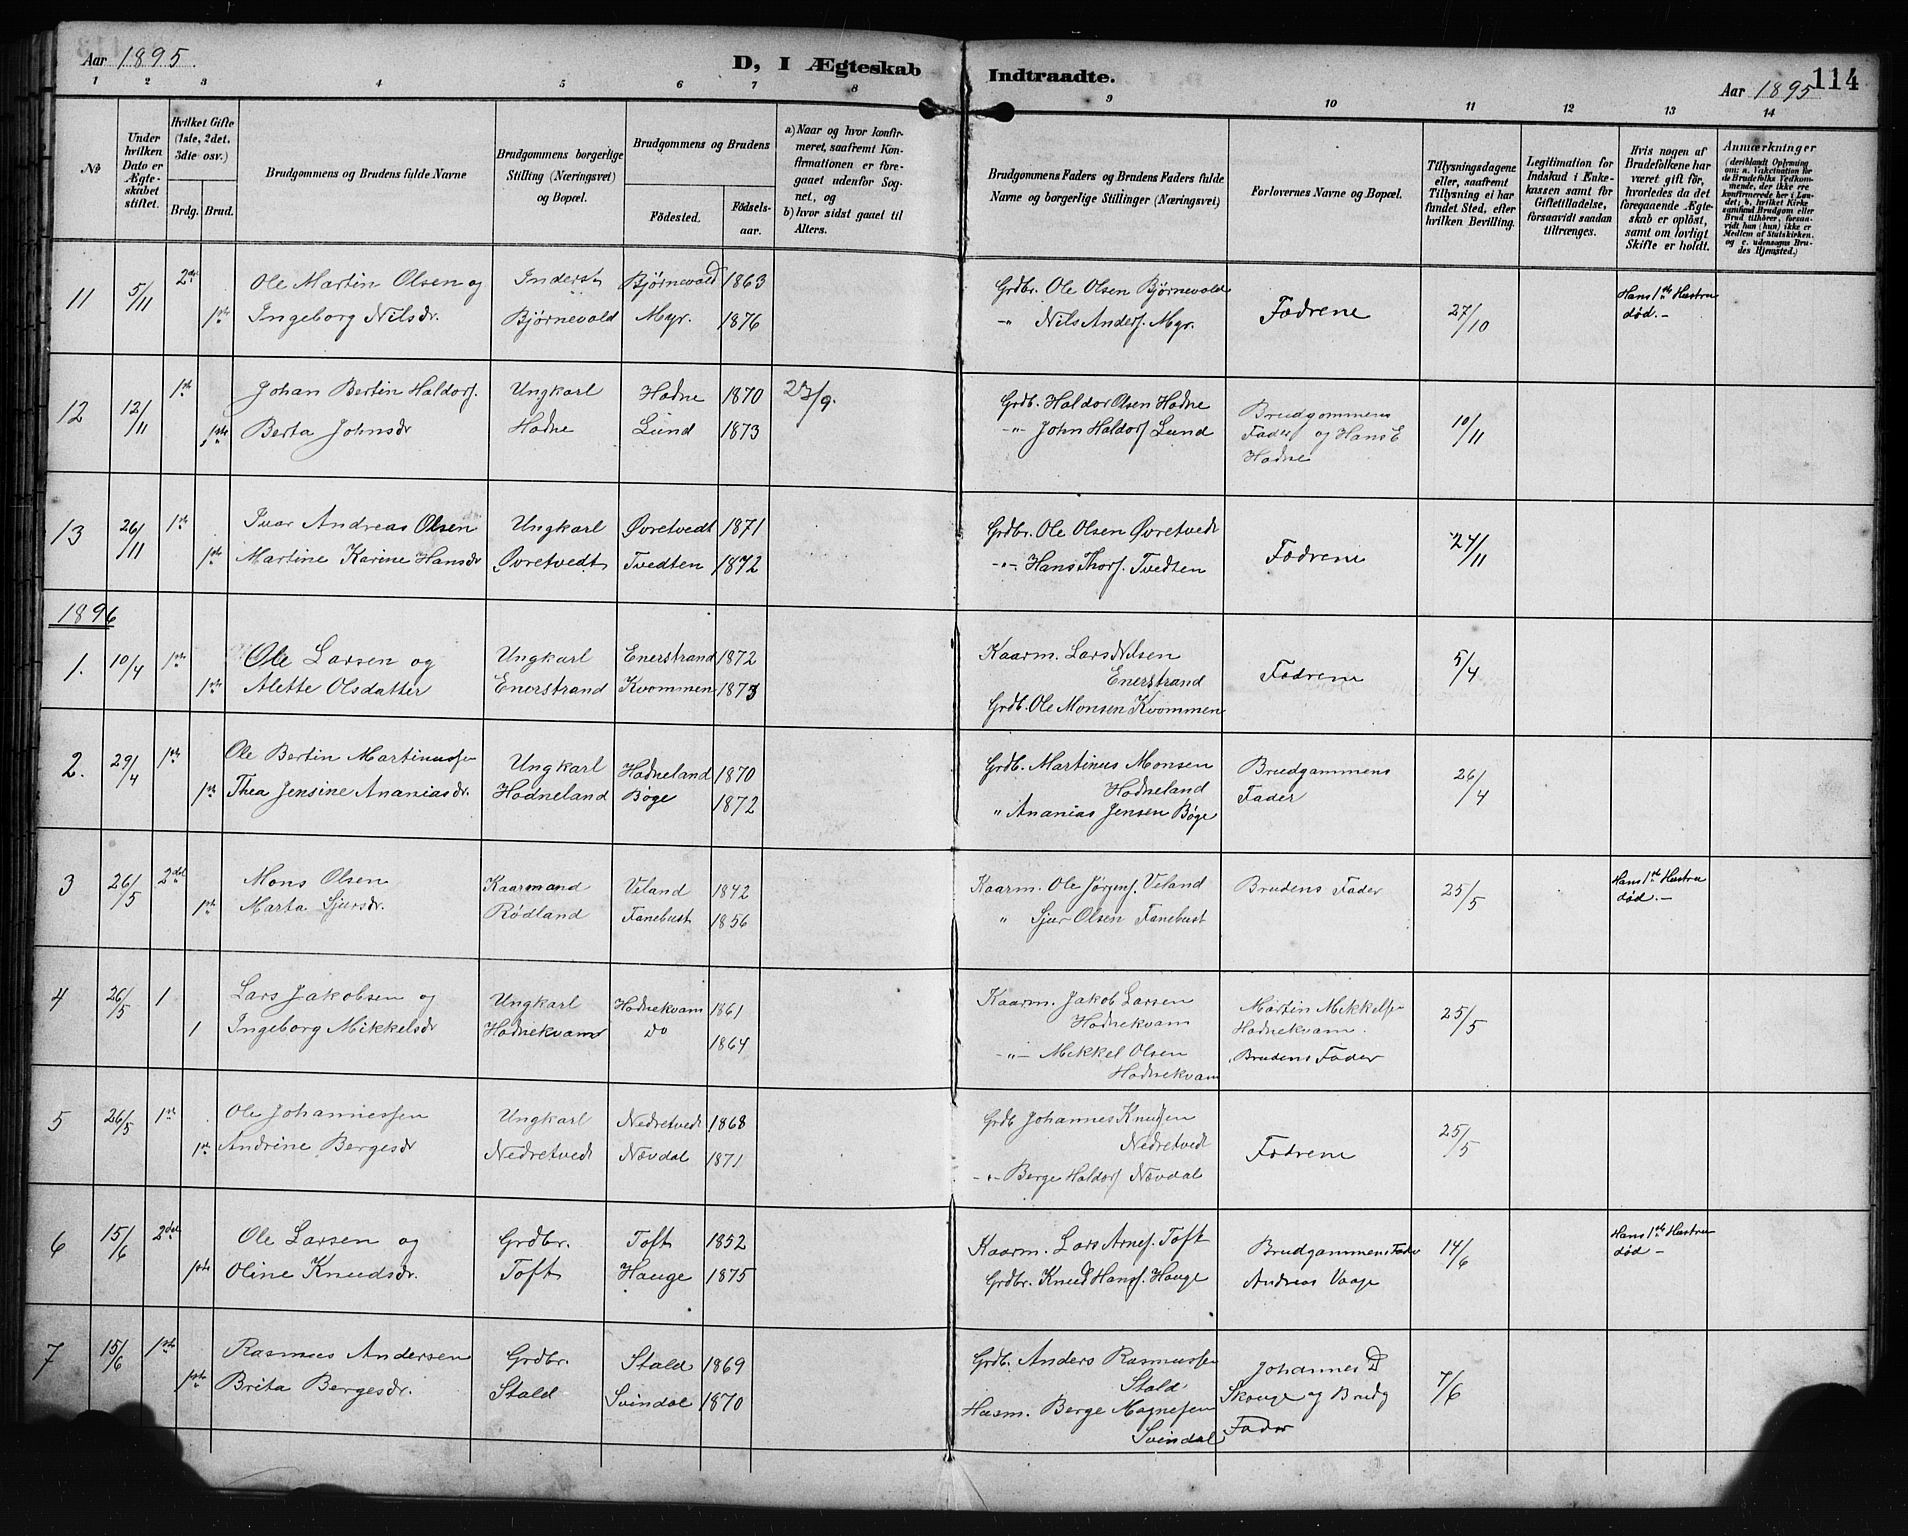 Aar 1895.
D, I Ægteskab Indtraadte.
Aar 1895
114
1 2 3 4 5 6 7 8 9 10 11 12 13 14
№
Under hvilken Dato er Ægteskabet stiftet.
Hvilket Gifte (1ste, 2det, 3die osv.)
Brdg. Brud.
Brudgommens og Brudens fulde Navne
Brudgommens borgerlige Stilling (Næringsvei) og Bopæl.
Brudgommens og Brudens
Fødested.
Fødselsaar.
a) Naar og hvor konfirmeret, saafremt Konfirmationen er foregaaet udenfor Sognet, og
b) hvor sidst gaaet til Alters.
Brudgommens Faders og Brudens Faders fulde Navne og borgerlige Stillinger (Næringsvei)
Forlovernes Navne og Bopæl.
Tillysningsdagene eller, saafremt Tillysning ei har fundet Sted, efter hvilken Bevilling.
Legitimation for Indskud i Enkekassen samt for Giftetilladelse, forsaavidt saadan tiltrænges.
Hvis nogen af Brudefolkene har været gift før, hvorledes da det foregaaende Ægteskab er opløst, samt om lovligt Skifte er holdt.
Anmærkninger
(deriblandt Oplysning om: a. Vakcination for de Brudefolks Vedkommende, der ikke ere konfirmerede her i Landet; b. hvilket Kirkesamfund Brudgom eller Brud tilhører, forsaavidt han (hun) ikke er Medlem af Statskirken, og c. udensogns Brudes Hjemsted.)
11 5/11 2det Ole Martin Olsen og Inderst Bjørnevold 1863 Grdbr. Ole Olsen Bjørnevold Fødrene 27/10 Hans 1ste Hustru
1ste Ingeborg Nilsdr. Bjørnevold Myr. 1876 -"- Nils Anders. Myr. død.-
12 12/11 1ste Johan Bertin Haldors. Ungkarl Hodne 1870 27/9. Grdb. Haldor Olsen Hodne Brudgommens 10/11
1ste Berta Johnsdr Hodne Lund 1873 -"- John Haldors. Lund Fader og Hans E
Hodne
13 26/11 1ste Ivar Andreas Olsen Ungkarl Øvretvedt 1871 Grdbr. Ole Olsen Øvretvedt Fødrene 24/11
1ste Martine Karine Hansdr Øvretvedt Tvedten 1872 -"- Hans Thors. Tvedten
1896
1. 10/4 1ste Ole Larsen og Ungkarl Enerstrand 1872 Kaarm. Lars Nilsen Fødrene 5/4
1ste Alette Olsdatter Enerstrand Kvommen 1873 Enerstrand
Grdb. Ole Monsen Kvommen
2. 29/4 1ste Ole Bertin Martinussen Ungkarl Hodneland 1870 Grdb. Martinus Monsen Brudgammens 26/4
1ste Thea Jensine Ananiasdr. Hodneland Bøge 1872 Hodneland Fader
" Ananias Jensen Bøge
3 26/5 2det Mons Olsen Kaarmand Veland 1842 Kaarm. Ole Jørgens. Veland Brudens Fader 25/5 Hans 1ste Hustru
1ste Marta Sjursdr. Rødland Fanebust 1856 " Sjur Olsen Fanebust død.-
4 26/5 1 Lars Jakobsen og Ungkarl Hodnekvam 1861 Kaarm. Jakob Larsen Martin Mikkelsen 25/5
1 Ingeborg Mikkelsdr Hodnekvam do 1864 Hodnekvam Hodnekvam.
-"- Mikkel Olsen Brudens Fader
Hodnekvam
5 26/5 1ste Ole Johannessen Ungkarl Nedretvedt 1868 Grdb Johannes Knudsen 25/5
1ste Andrine Bergesdr Nedretvedt Nævdal 1871 Nedretvedt Fødrene
-"- Berge Haldors. Nævdal
6 15/6 2det Ole Larsen og Grdbr. Toft 1852 Kaarm. Lars Arnes. Toft Brudgammens Fader 14/6 Hans 1ste Hustru
1ste Oline Knudsdr. Toft Hauge 1875 Grdbr. Knud Hans. Hauge Andreas Vaage død-
7 15/6 1ste Rasmus Andersen Grdbr. Stald 1869 Grdb. Anders Rasmussen Johannes D 7/6
1ste Brita Bergesdr. Stald Svindal 1870 Stald Skauge og Brudg
Husm. Berge Magnesen Fader
Svindal